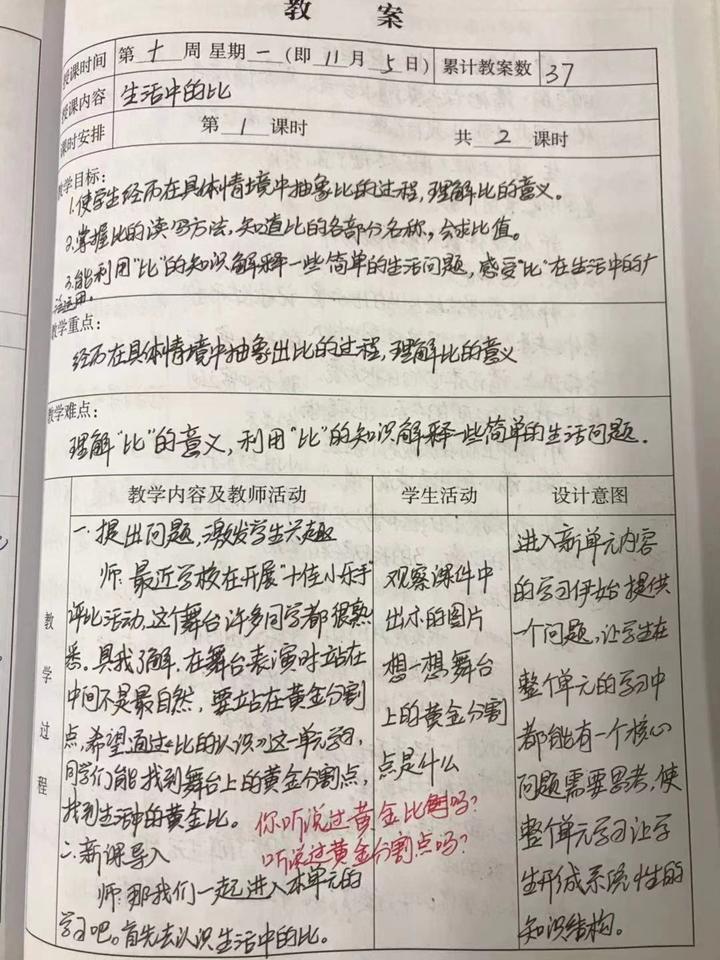 教 案
授课时间 第 十 周 星期 一 (即 11 月 5 日) 累计教案数 37
授课内容 生活中的比
课时安排 第 1 课时 共 2 课时
教学目标:
1.使学生经历在具体情境中抽象比的过程,理解比的意义。
2.掌握比的读写方法,知道比的各部分名称,会求比值。
3.能利用"比"的知识解释一些简单的生活问题,感受"比"在生活中的广
泛运用。
教学重点:
经历在具体情境中抽象出比的过程,理解比的意义
教学难点:
理解"比"的意义,利用"比"的知识解释一些简单的生活问题.
教学过程
教学内容及教师活动
一.提出问题,激发学生兴趣
师:最近学校在开展"十佳小乐手"
评比活动,这个舞台许多同学都很熟
悉。具我了解,在舞台表演时站在
中间不是最自然,要站在黄金分割
点,希望通过《比的认识》这一单元学习,
同学们能找到舞台上的黄金分割点,
找到生活中的黄金比。
你听说过黄金比吗?
听说过黄金分割点吗?
二.新课导入
师:那我们一起进入本单元的
学习吧。首先去认识生活中的比。
学生活动
观察课件中
出示的图片
想一想舞台
上的黄金分割
点是什么
设计意图
进入新单元内容
的学习伊始提供
一个问题,让学生在
整个单元的学习中
都能有一个核心
问题需要思考,使
整个单元学习让学
生形成系统性的
知识结构。